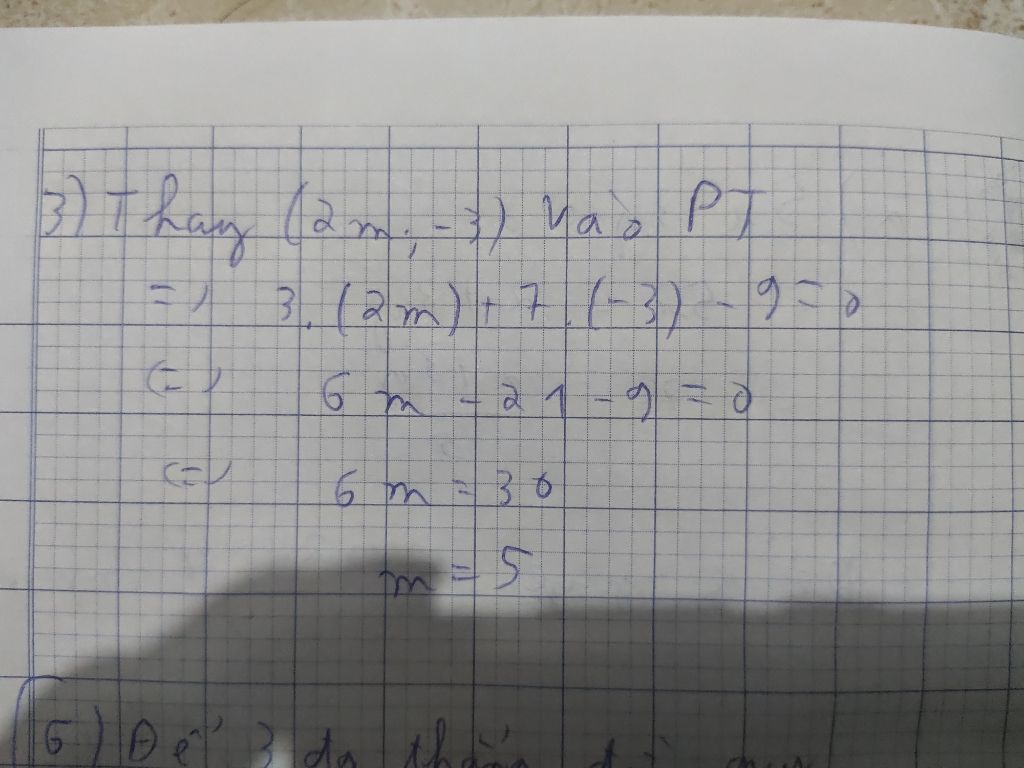 3) Thay (2m; -3) vào PT
=> 3.(2m) + 7.(-3) - 9 = 0
<=> 6m - 21 - 9 = 0
<=> 6m = 30
m = 5
5) Để 3